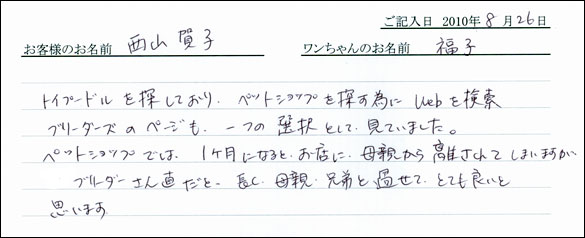 ご記入日 2010年8月26日
お客様のお名前 西山賀子 ワンちゃんのお名前 福子
トイプードルを探しており、ペットショップを探す為にWebを検索
ブリーダーズのページも、一つの選択として見ていました。
ペットショップでは、1ヶ月になると、お店に、母親から離されてしまいますが、
ブリーダーさん直だと、長く、母親・兄弟と過せて、とても良いと
思います